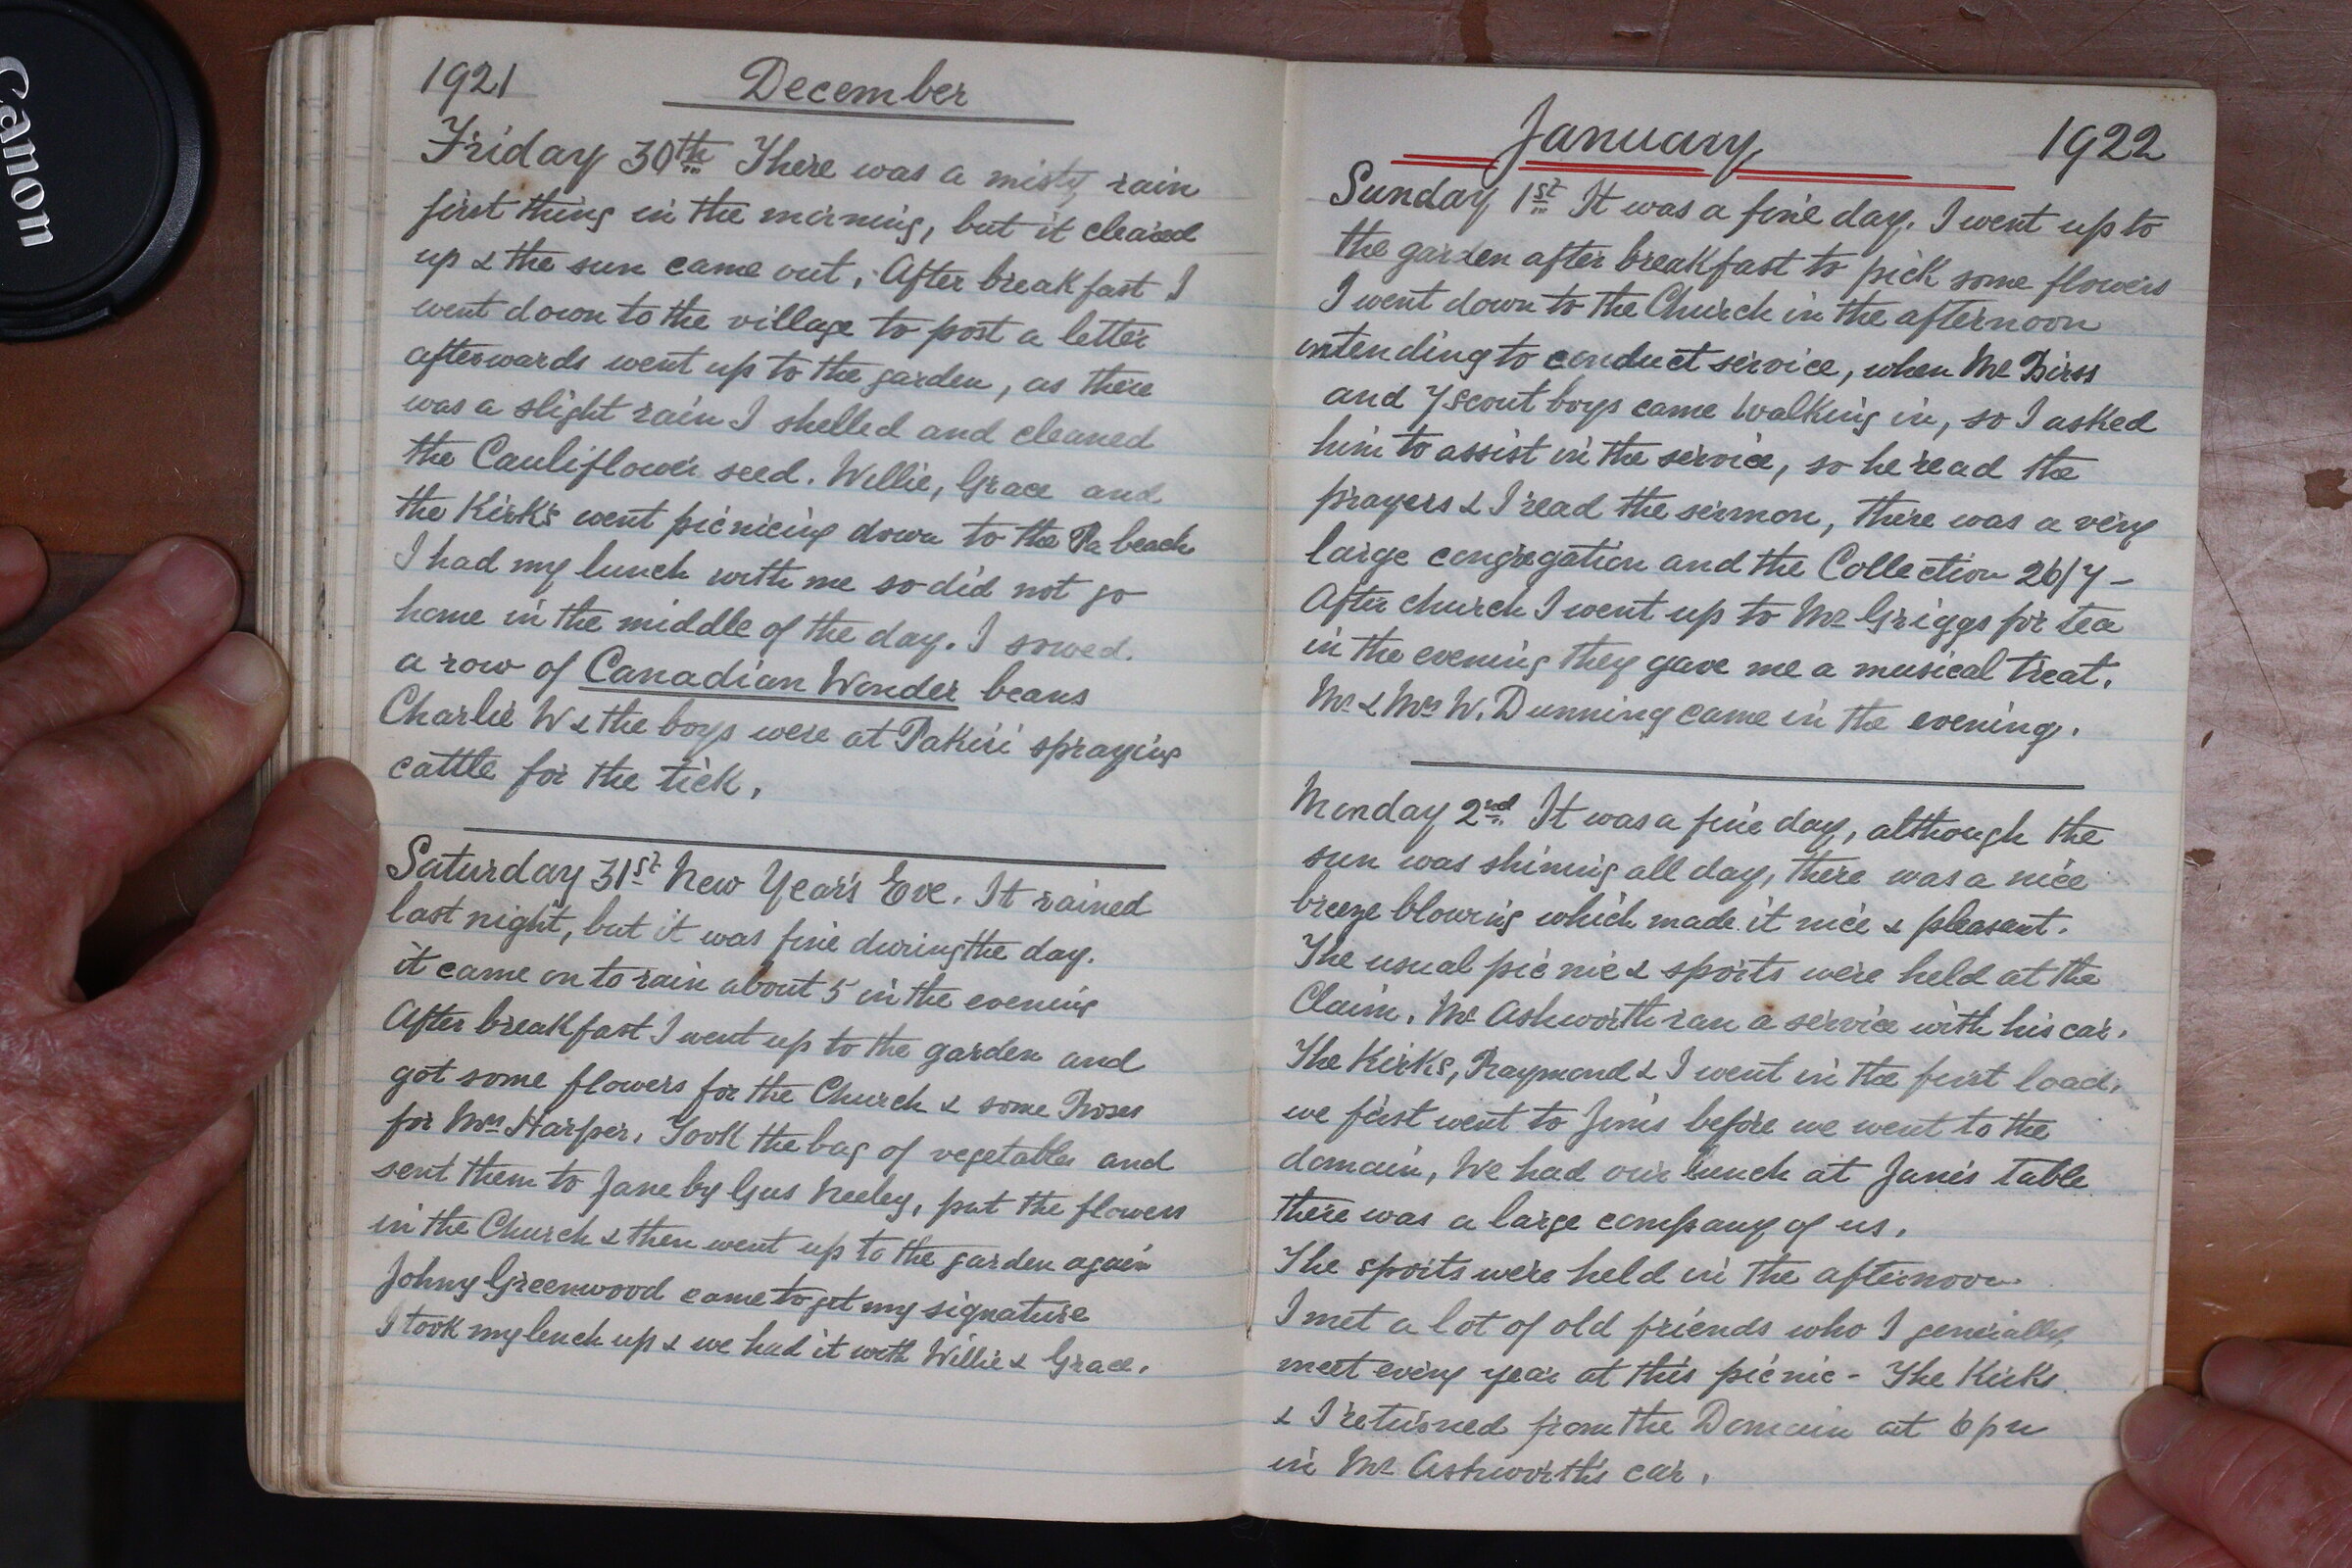 Canon
1921 December
Friday 30th There was a misty rain
first thing in the morning, but it cleared
up & the sun came out, After breakfast I
went down to the village to post a letter
afterwards went up to the garden, as there
was a slight rain I shelled and cleaned
the Cauliflower seed. Willie, Grace and
the Kirk's went picnicing down to the Pa beach
I had my lunch with me so did not go
home in the middle of the day. I sowed.
a row of Canadian Wonder beans
Charlie W & the boys were at Pakiri spraying
cattle for the tick.
Saturday 31st New Year's Eve. It rained
last night, but it was fine during the day.
it came on to rain about 5 in the evening
After breakfast I went up to the garden and
got some flowers for the Church & some Roses
for Mrs Harper. Took the bag of vegetables and
sent them to Jane by Gus Neeley, put the flowers
in the Church & then went up to the garden again
Johny Greenwood came to get my signature
I took my lunch up & we had it with Willie & Grace.
January 1922
Sunday 1st It was a fine day. I went up to
the garden after breakfast to pick some flowers
I went down to the Church in the afternoon
intending to conduct service, when Mr Birss
and 7 scout boys came walking in, so I asked
him to assist in the service, so he read the
prayers & I read the sermon, there was a very
large congregation and the Collection 26/7 -
After church I went up to Mr Griggs for tea
in the evening they gave me a musical treat.
Mr & Mrs W. Dunning came in the evening.
Monday 2nd It was a fine day, although the
sun was shining all day, there was a nice
breeze blowing which made it nice & pleasant.
The usual picnic & sports were held at the
Claim. Mr Ashworth ran a service with his car.
The Kirks, Raymond & I went in the first load,
we first went to Jim's before we went to the
domain, We had our lunch at Jane's table
there was a large company of us.
The sports were held in the afternoon
I met a lot of old friends who I generally
meet every year at this picnic - The Kirks
& I returned from the Domain at 6 pm
in Mr Ashworth's car.